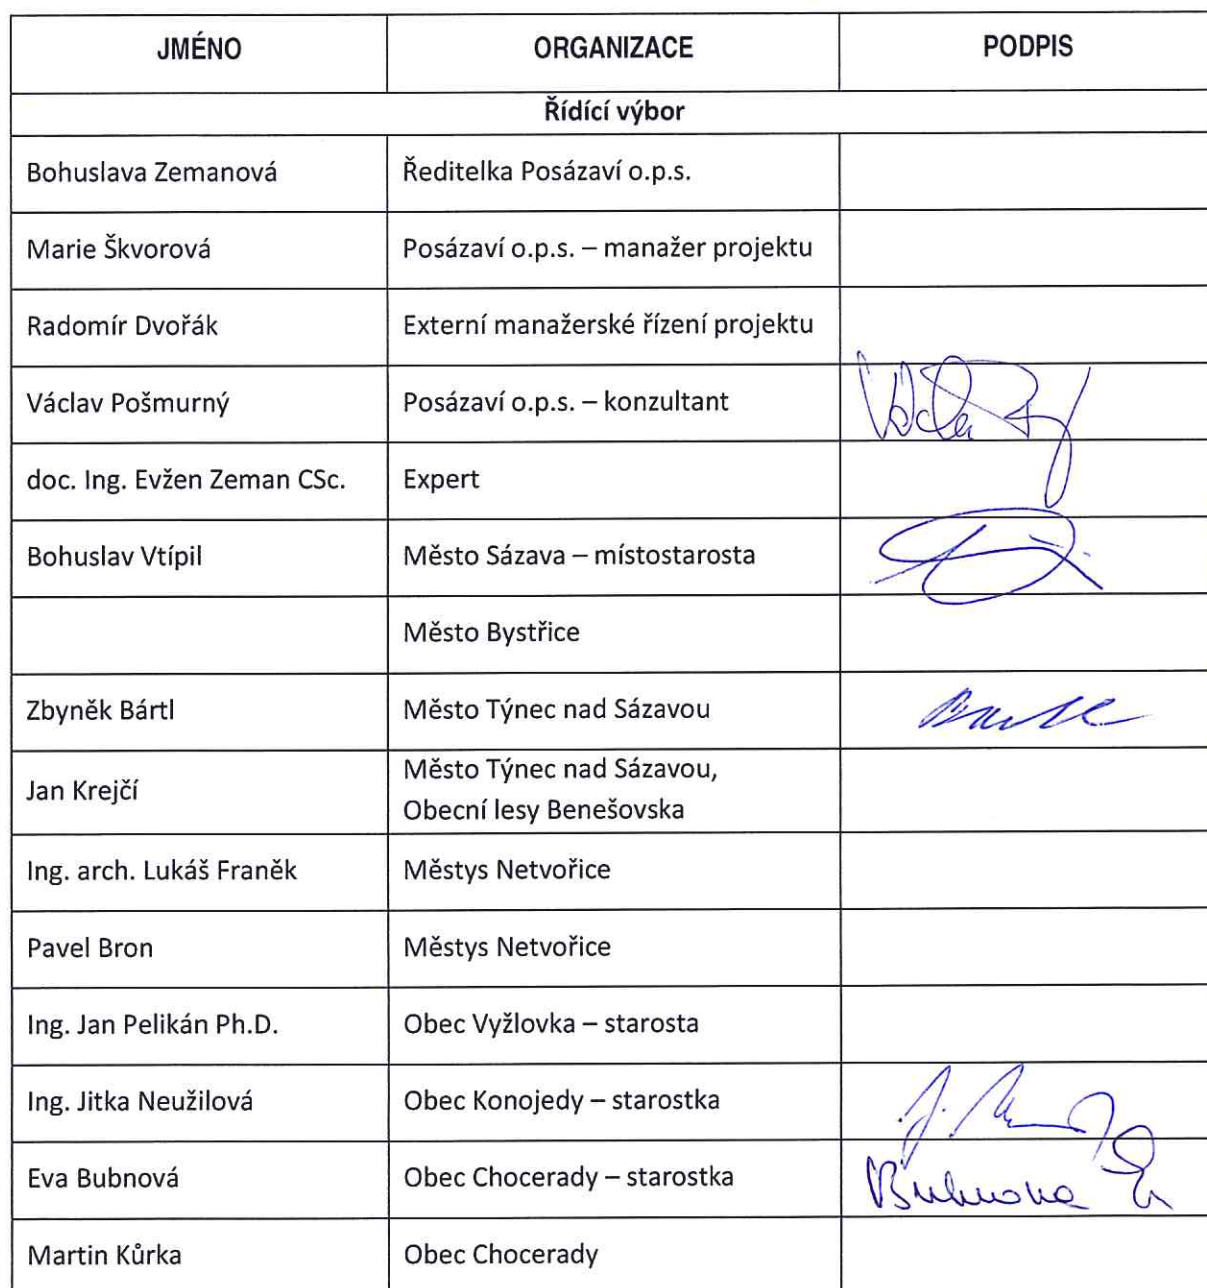 JMÉNO ORGANIZACE PODPIS
Řídící výbor
Bohuslava Zemanová Ředitelka Posázaví o.p.s.
Marie Škvorová Posázaví o.p.s. – manažer projektu
Radomír Dvořák Externí manažerské řízení projektu
Václav Pošmurný Posázaví o.p.s. – konzultant
doc. Ing. Evžen Zeman CSc. Expert
Bohuslav Vtípil Město Sázava – místostarosta
Město Bystřice
Zbyněk Bártl Město Týnec nad Sázavou
Jan Krejčí Město Týnec nad Sázavou,
Obecní lesy Benešovska
Ing. arch. Lukáš Franěk Městys Netvořice
Pavel Bron Městys Netvořice
Ing. Jan Pelikán Ph.D. Obec Vyžlovka – starosta
Ing. Jitka Neužilová Obec Konojedy – starostka
Eva Bubnová Obec Chocerady – starostka Bubnova
Martin Kůrka Obec Chocerady